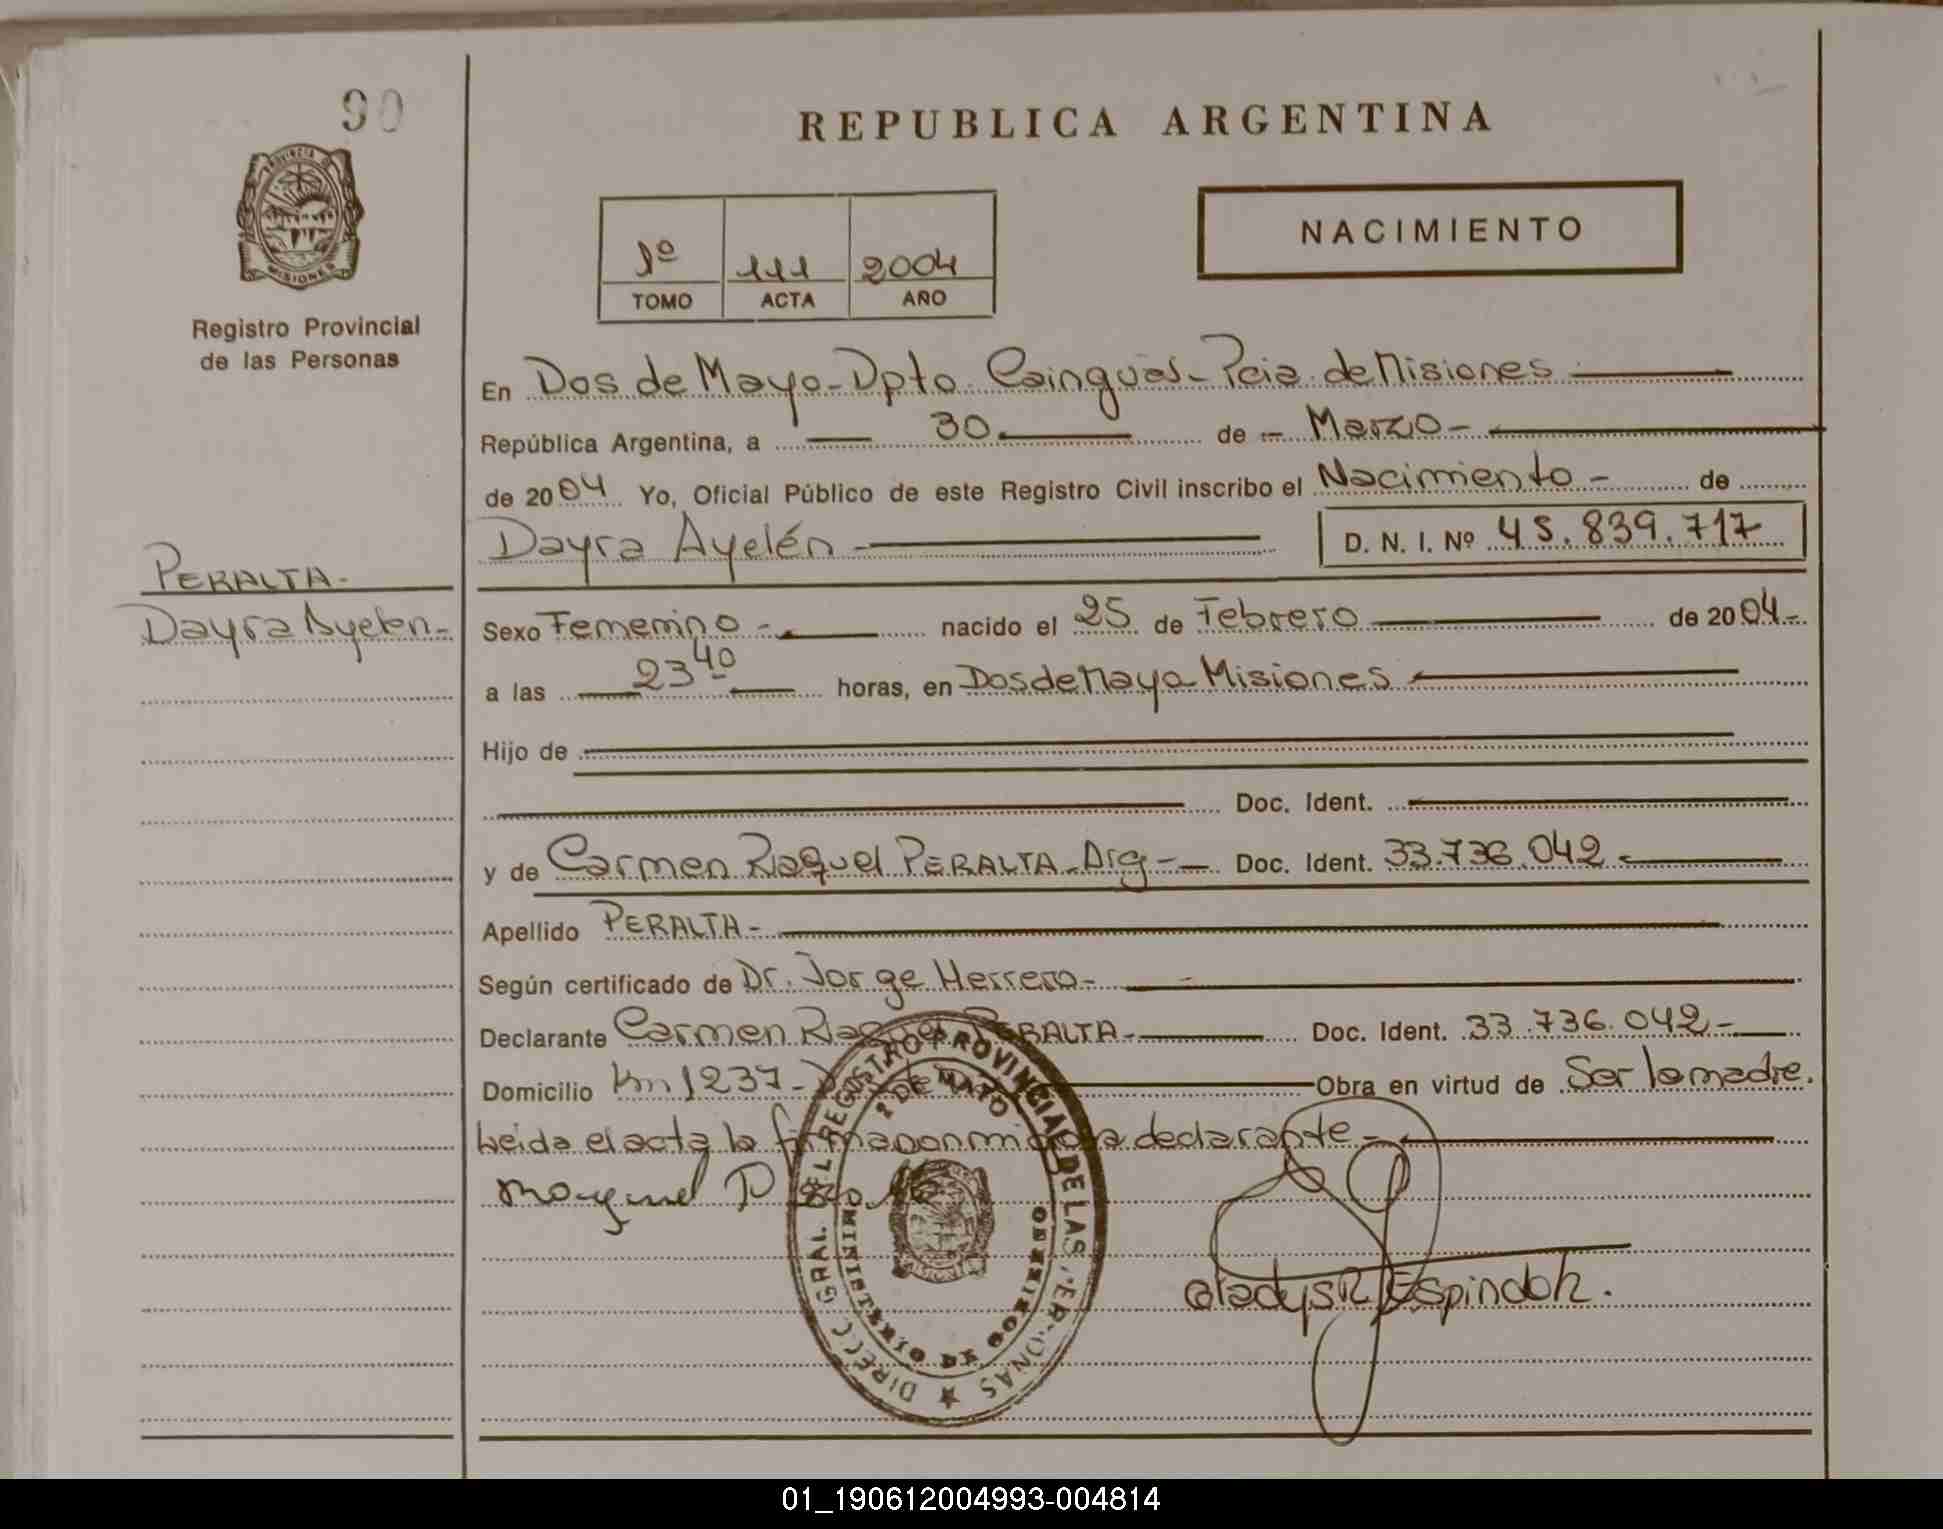 90
REPUBLICA ARGENTINA
PROVINCIA DE
MISIONES
Registro Provincial
de las Personas
1º 111 2004
TOMO ACTA AÑO
NACIMIENTO
En Dos de Mayo - Dpto. Cainguás - Pcia. de Misiones
República Argentina, a 30 de Marzo -
de 2004 Yo, Oficial Público de este Registro Civil inscribo el Nacimiento - de
Dayra Ayelén D. N. I. Nº 45.839.717
PERALTA -
Dayra Ayelen -
Sexo Femenino - nacido el 25 de Febrero de 2004 -
a las 23 40 horas, en Dos de Mayo Misiones
Hijo de
Doc. Ident.
y de Carmen Raquel PERALTA - Arg - Doc. Ident. 33.736.042
Apellido PERALTA -
Según certificado de Dr. Jorge Herrero -
Declarante Carmen Raquel PERALTA - Doc. Ident. 33.736.042 -
Domicilio Km 1237 - Obra en virtud de Ser la madre.
Leida el acta la firma conmigo la declarante -
DIRECC. GRAL. DEL REGISTRO PROVINCIAL DE LAS PERSONAS
2 DE MAYO
MINISTERIO DE GOBIERNO
MISIONES
Gladys R. Espindola.
01_190612004993-004814